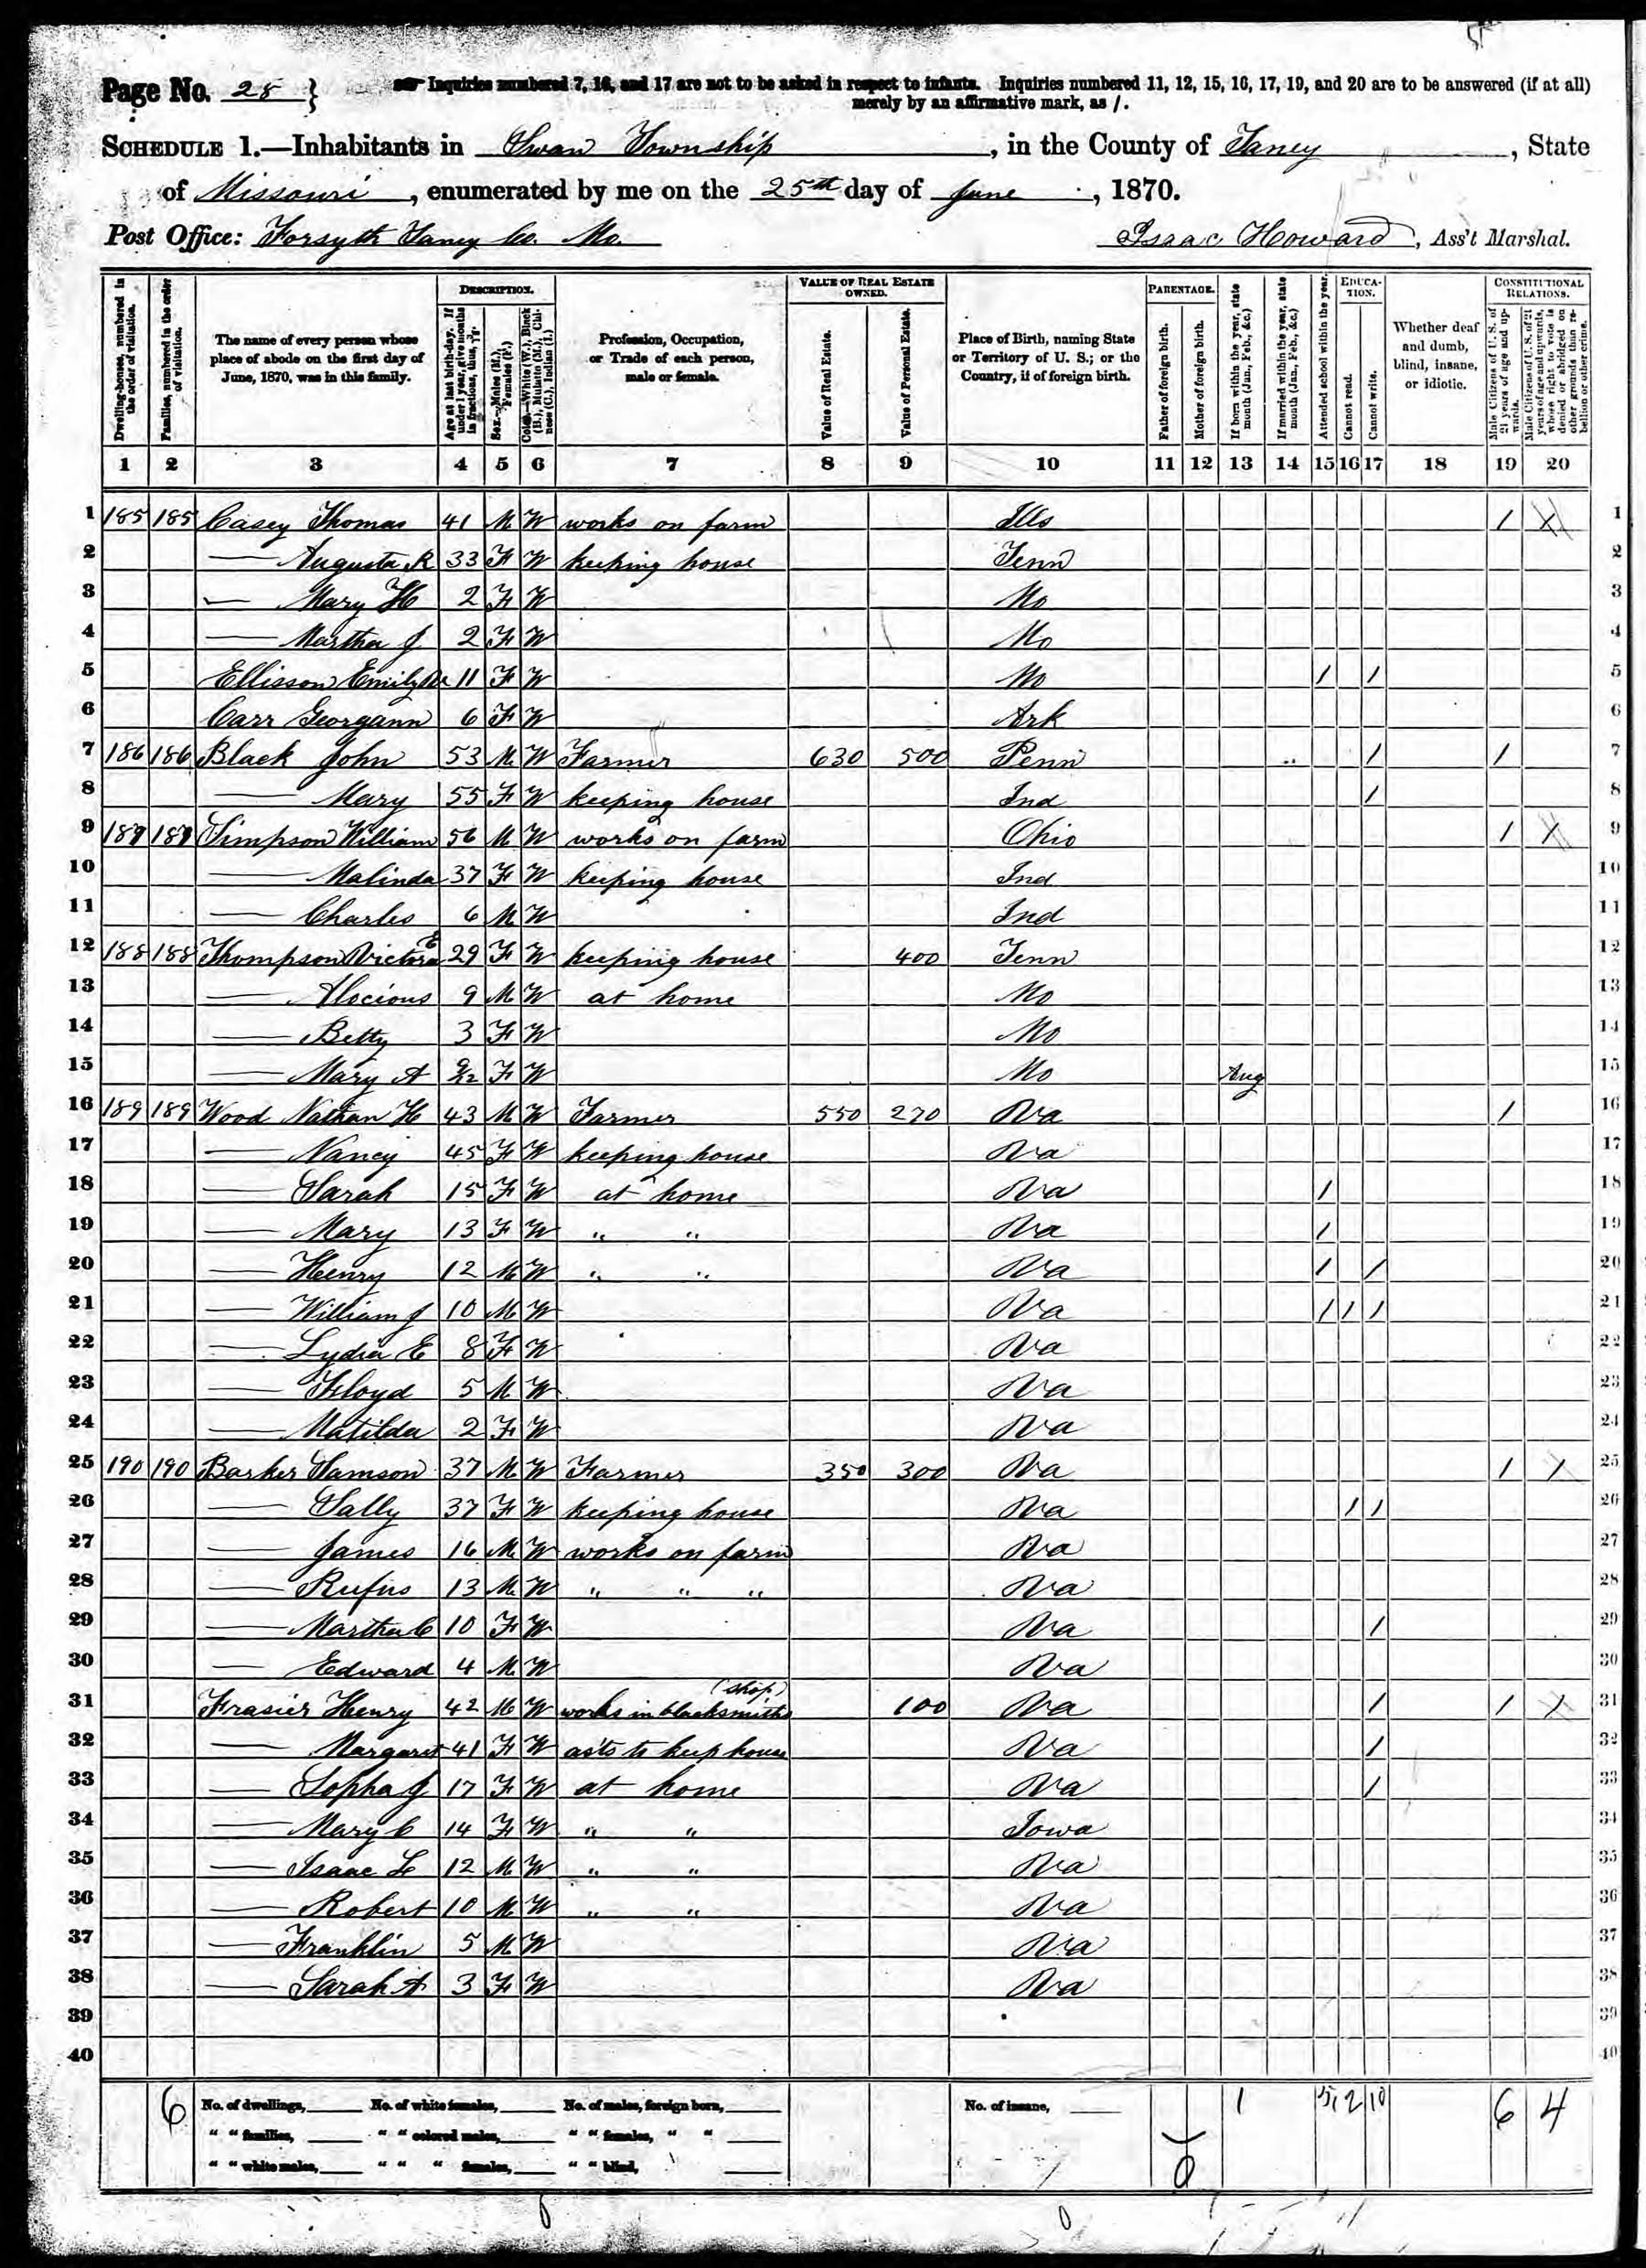 Page No. 28 } Inquiries numbered 7, 16, and 17 are not to be asked in respect to infants. Inquiries numbered 11, 12, 15, 16, 17, 19, and 20 are to be answered (if at all)
merely by an affirmative mark, as /.
SCHEDULE 1.—Inhabitants in Swan Township, in the County of Taney, State
of Missouri, enumerated by me on the 25th day of June, 1870.
Post Office: Forsyth Taney Co. Mo. Isaac Howard, Ass't Marshal.
Dwelling-houses, numbered in the order of visitation.
Families, numbered in the order of visitation.
The name of every person whose place of abode on the first day of June, 1870, was in this family.
DESCRIPTION.
Age at last birth-day. If under 1 year, give months in fractions, thus,
Sex.—Males (M.), Females (F.)
Color.—White (W.), Black (B.), Mulatto (M.), Chinese (C.), Indian (I.)
Profession, Occupation, or Trade of each person, male or female.
VALUE OF REAL ESTATE OWNED.
Value of Real Estate.
Value of Personal Estate.
Place of Birth, naming State or Territory of U. S.; or the Country, if of foreign birth.
PARENTAGE.
Father of foreign birth.
Mother of foreign birth.
If born within the year, state month (Jan., Feb., &c.)
If married within the year, state month (Jan., Feb., &c.)
Attended school within the year.
EDUCATION.
Cannot read.
Cannot write.
Whether deaf and dumb, blind, insane, or idiotic.
CONSTITUTIONAL RELATIONS.
Male Citizens of U. S. of 21 years of age and upwards.
Male Citizens of U. S. of 21 years of age and upwards, whose right to vote is denied or abridged on other grounds than rebellion or other crime.
1 2 3 4 5 6 7 8 9 10 11 12 13 14 15 16 17 18 19 20
1 185 185 Casey Thomas 41 M W works on farm Ills / / 1
2 — Augusta R 33 F W keeping house Tenn 2
3 — Mary H 2 F W Mo 3
4 — Martha J 2 F W Mo 4
5 Ellisson Emily 11 F W Mo / / 5
6 Carr Georgann 6 F W Ark 6
7 186 186 Black John 53 M W Farmer 630 500 Penn / / 7
8 — Mary 55 F W keeping house Ind / 8
9 187 187 Simpson William 56 M W works on farm Ohio / / 9
10 — Malinda 37 F W keeping house Ind 10
11 — Charles 6 M W Ind 11
12 188 188 Thompson Victora E 29 F W keeping house 400 Tenn 12
13 — Alocious 9 M W at home Mo 13
14 — Betty 3 F W Mo 14
15 — Mary A 9/12 F W Mo Aug 15
16 189 189 Wood Nathan H 43 M W Farmer 550 270 Va / 16
17 — Nancy 45 F W keeping house Va 17
18 — Sarah 15 F W at home Va / 18
19 — Mary 13 F W " " Va / 19
20 — Henry 12 M W " " Va / / 20
21 — William J 10 M W Va / / / 21
22 — Lydia E 8 F W Va 22
23 — Floyd 5 M W Va 23
24 — Matilda 2 F W Va 24
25 190 190 Barker Samson 37 M W Farmer 350 300 Va / / 25
26 — Sally 37 F W keeping house Va / / 26
27 — James 16 M W works on farm Va 27
28 — Rufus 13 M W " " " Va 28
29 — Martha C 10 F W Va / 29
30 — Edward 4 M W Va 30
31 Frasier Henry 42 M W works in blacksmiths (shop) 100 Va / / / 31
32 — Margaret 41 F W asts to keep house Va / 32
33 — Sopha J 17 F W at home Va / 33
34 — Mary C 14 F W " " Iowa 34
35 — Isaac L 12 M W " " Va 35
36 — Robert 10 M W " " Va 36
37 — Franklin 5 M W Va 37
38 — Sarah A 3 F W Va 38
39 39
40 40
6 No. of dwellings, No. of white females, No. of males, foreign born, No. of insane, 1 5 2 10 6 4
" " families, " " colored males, " " females, " "
" " white males, " " " females, " " blind,